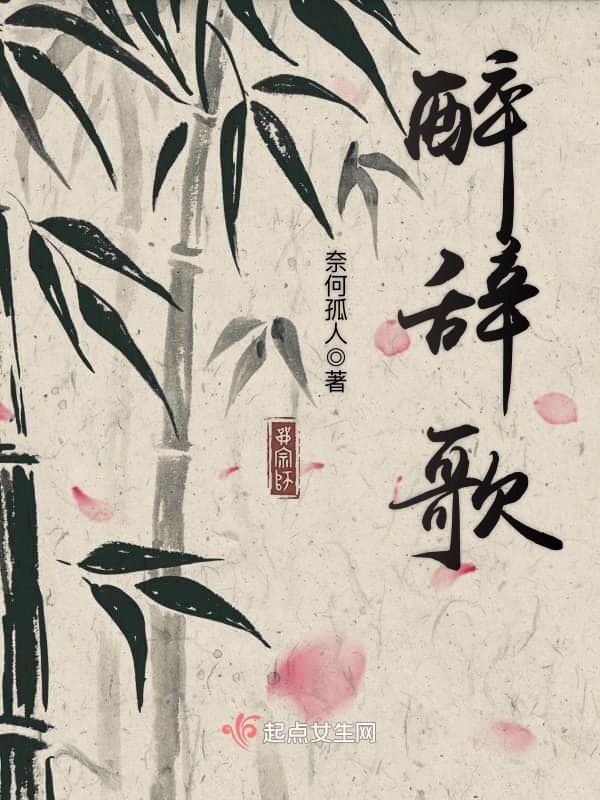 醉辞歌
奈何孤人◎著
起点女生网